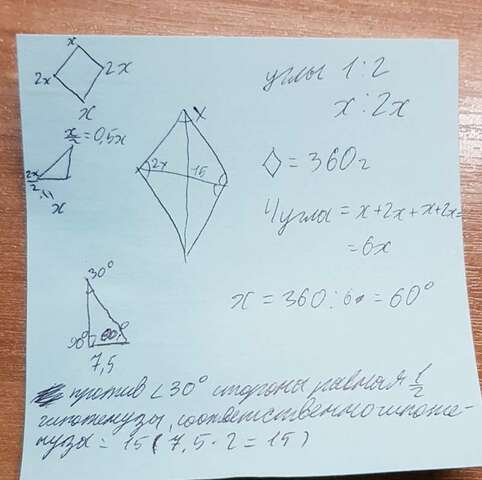 x
2x 2x
x
x/2 = 0,5x
2x/2
x
x
2x 15
30°
90° 60°
7,5
углы 1:2
x:2x
◊ = 360
4 угла = x+2x+x+2x=
= 6x
x = 360:6 = 60°
против ∠30° стороны равная 1/2
гипотенузы, соответственно гипоте-
нуза = 15 (7,5·2=15)